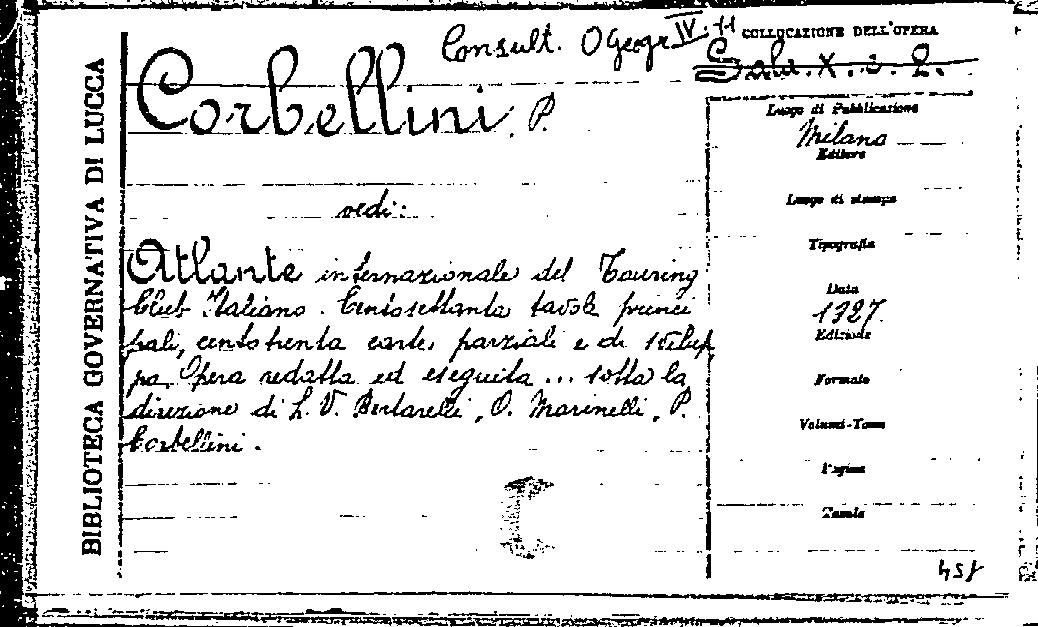 BIBLIOTECA GOVERNATIVA DI LUCCA
Consult. O Geogr IV. 11
COLLOCAZIONE DELL'OPERA
Sala. X. i. 2.
Corbellini, P.
vedi:
Atlante internazionale del Touring
Club Italiano. Centosettanta tavole princi
pali, centotrenta carte, parziali e di svilup
po. Opera redatta ed eseguita ... sotto la
direzione di L. V. Bertarelli, O. Marinelli, P.
Corbellini.
Luogo di Pubblicazione
Milano
Editore
Luogo di stampa
Tipografia
Data
1927
Edizione
Formato
Volumi-Tomo
Pagine
Tavole